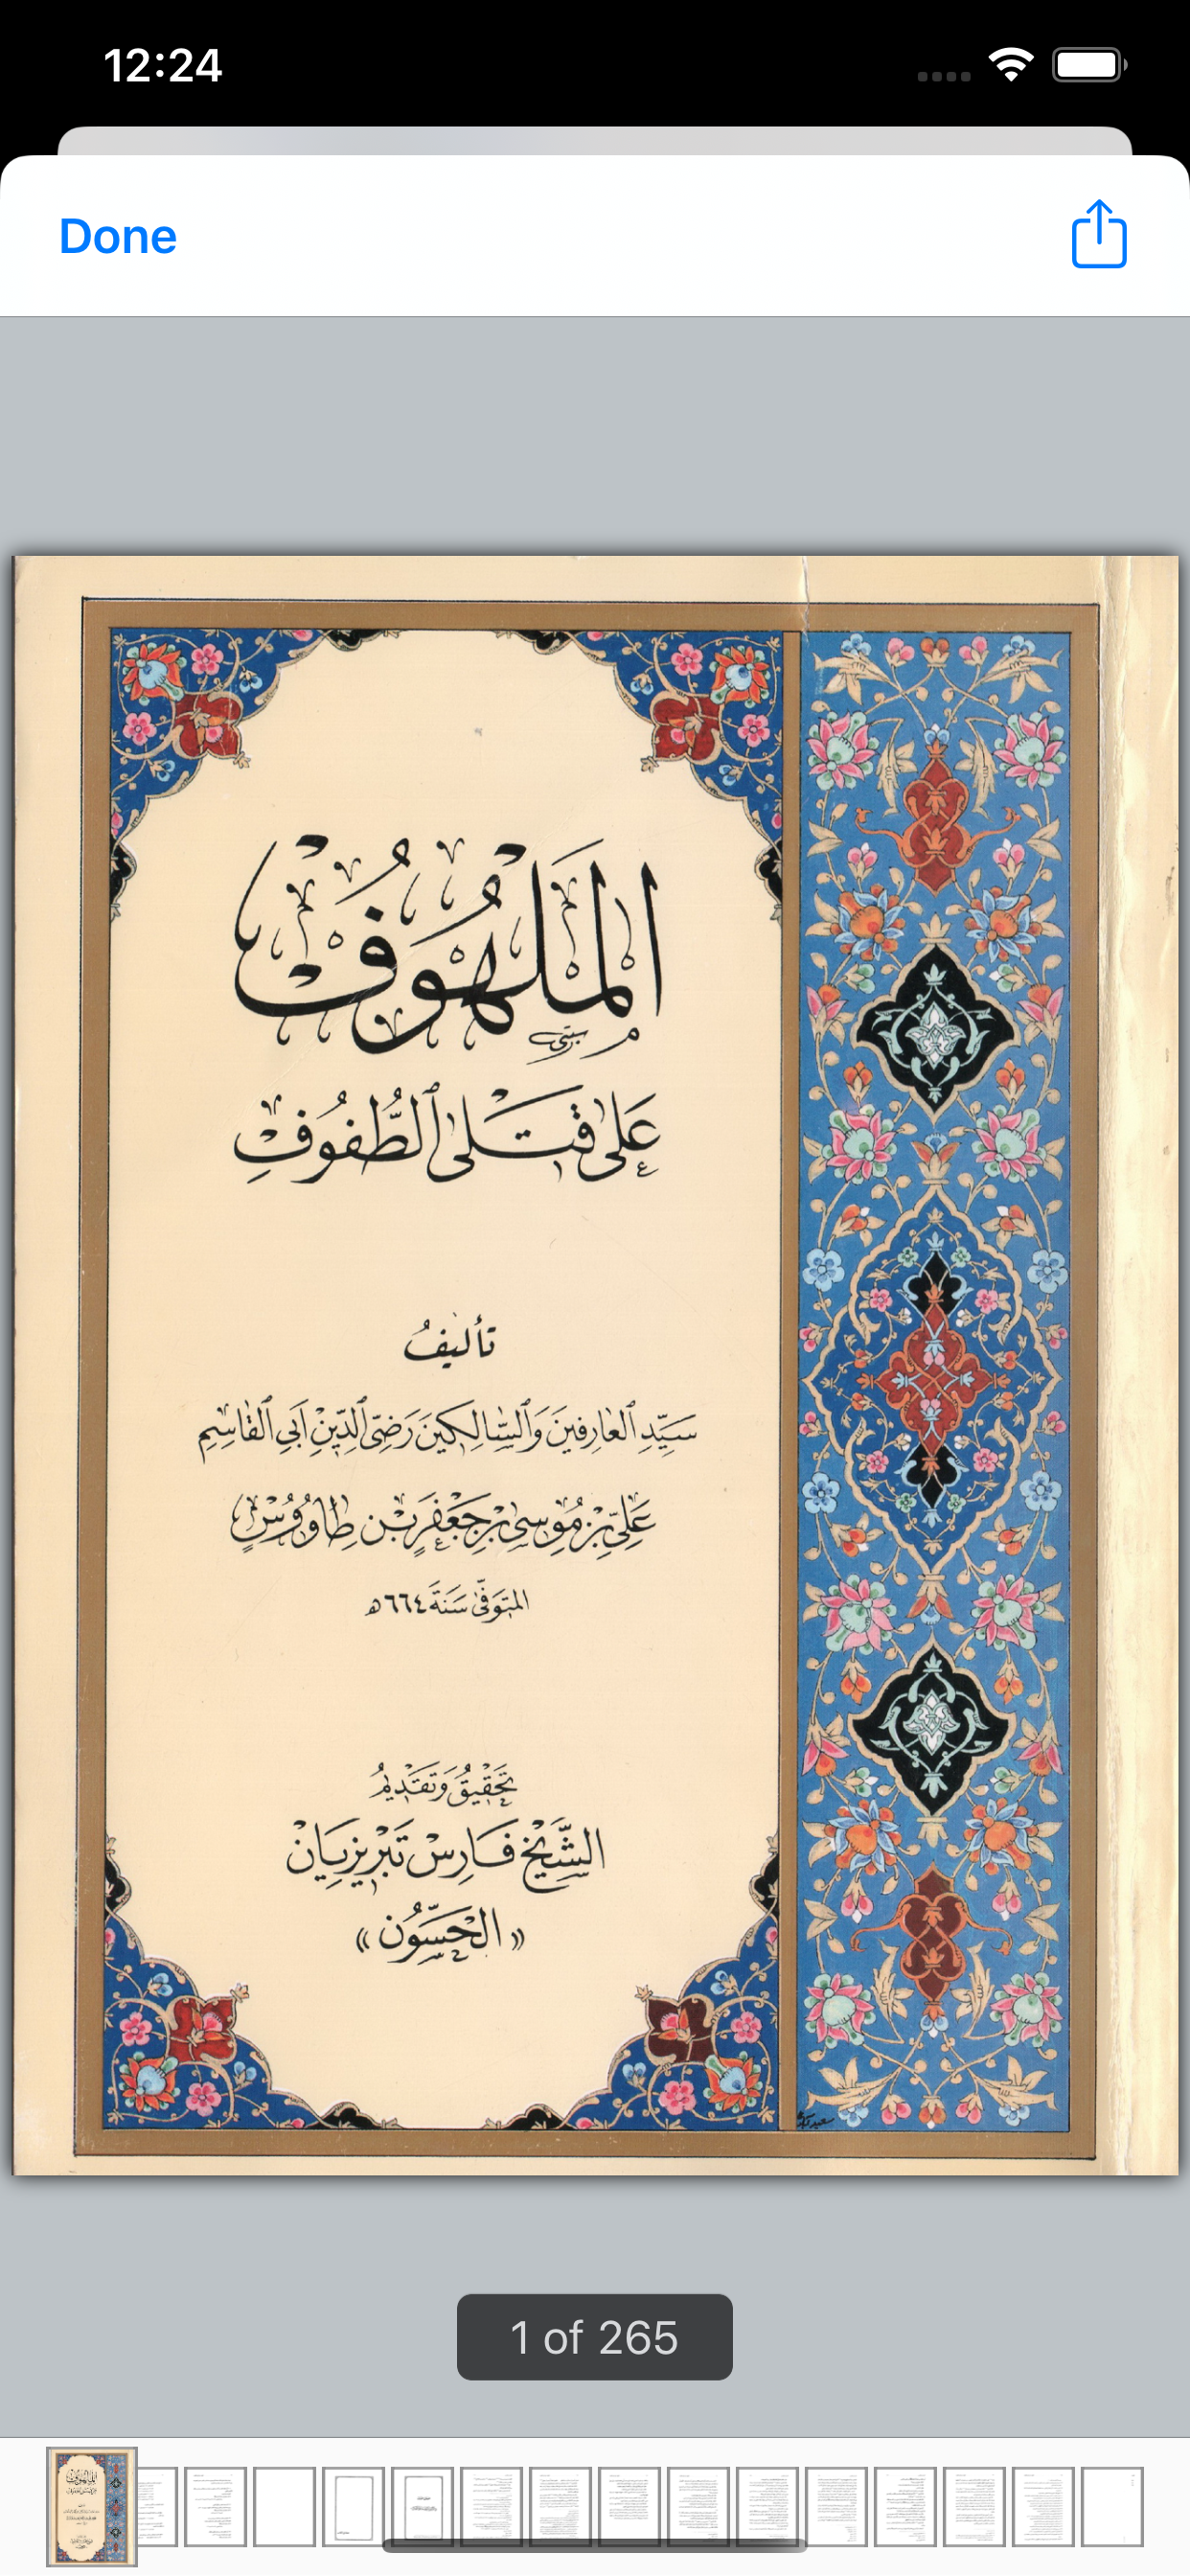 12:24
Done
المَلهُوفُ
عَلى قتلى الطُّفوفِ
تأليفُ
سَيِّدِ العَارِفينَ وَالسَّالِكينَ رَضِيِّ الدِّينِ أَبي القَاسِمِ
عَليِّ بْنِ مُوسى بْنِ جَعْفَرِ بْنِ طاوُوسٍ
المتوَفّى سَنَةَ ٦٦٤ه
تَحقِيقُ وَتَقدِيمُ
الشَّيْخ فَارِسْ تَبْريزِيَانْ
« الحَسّون »
1 of 265